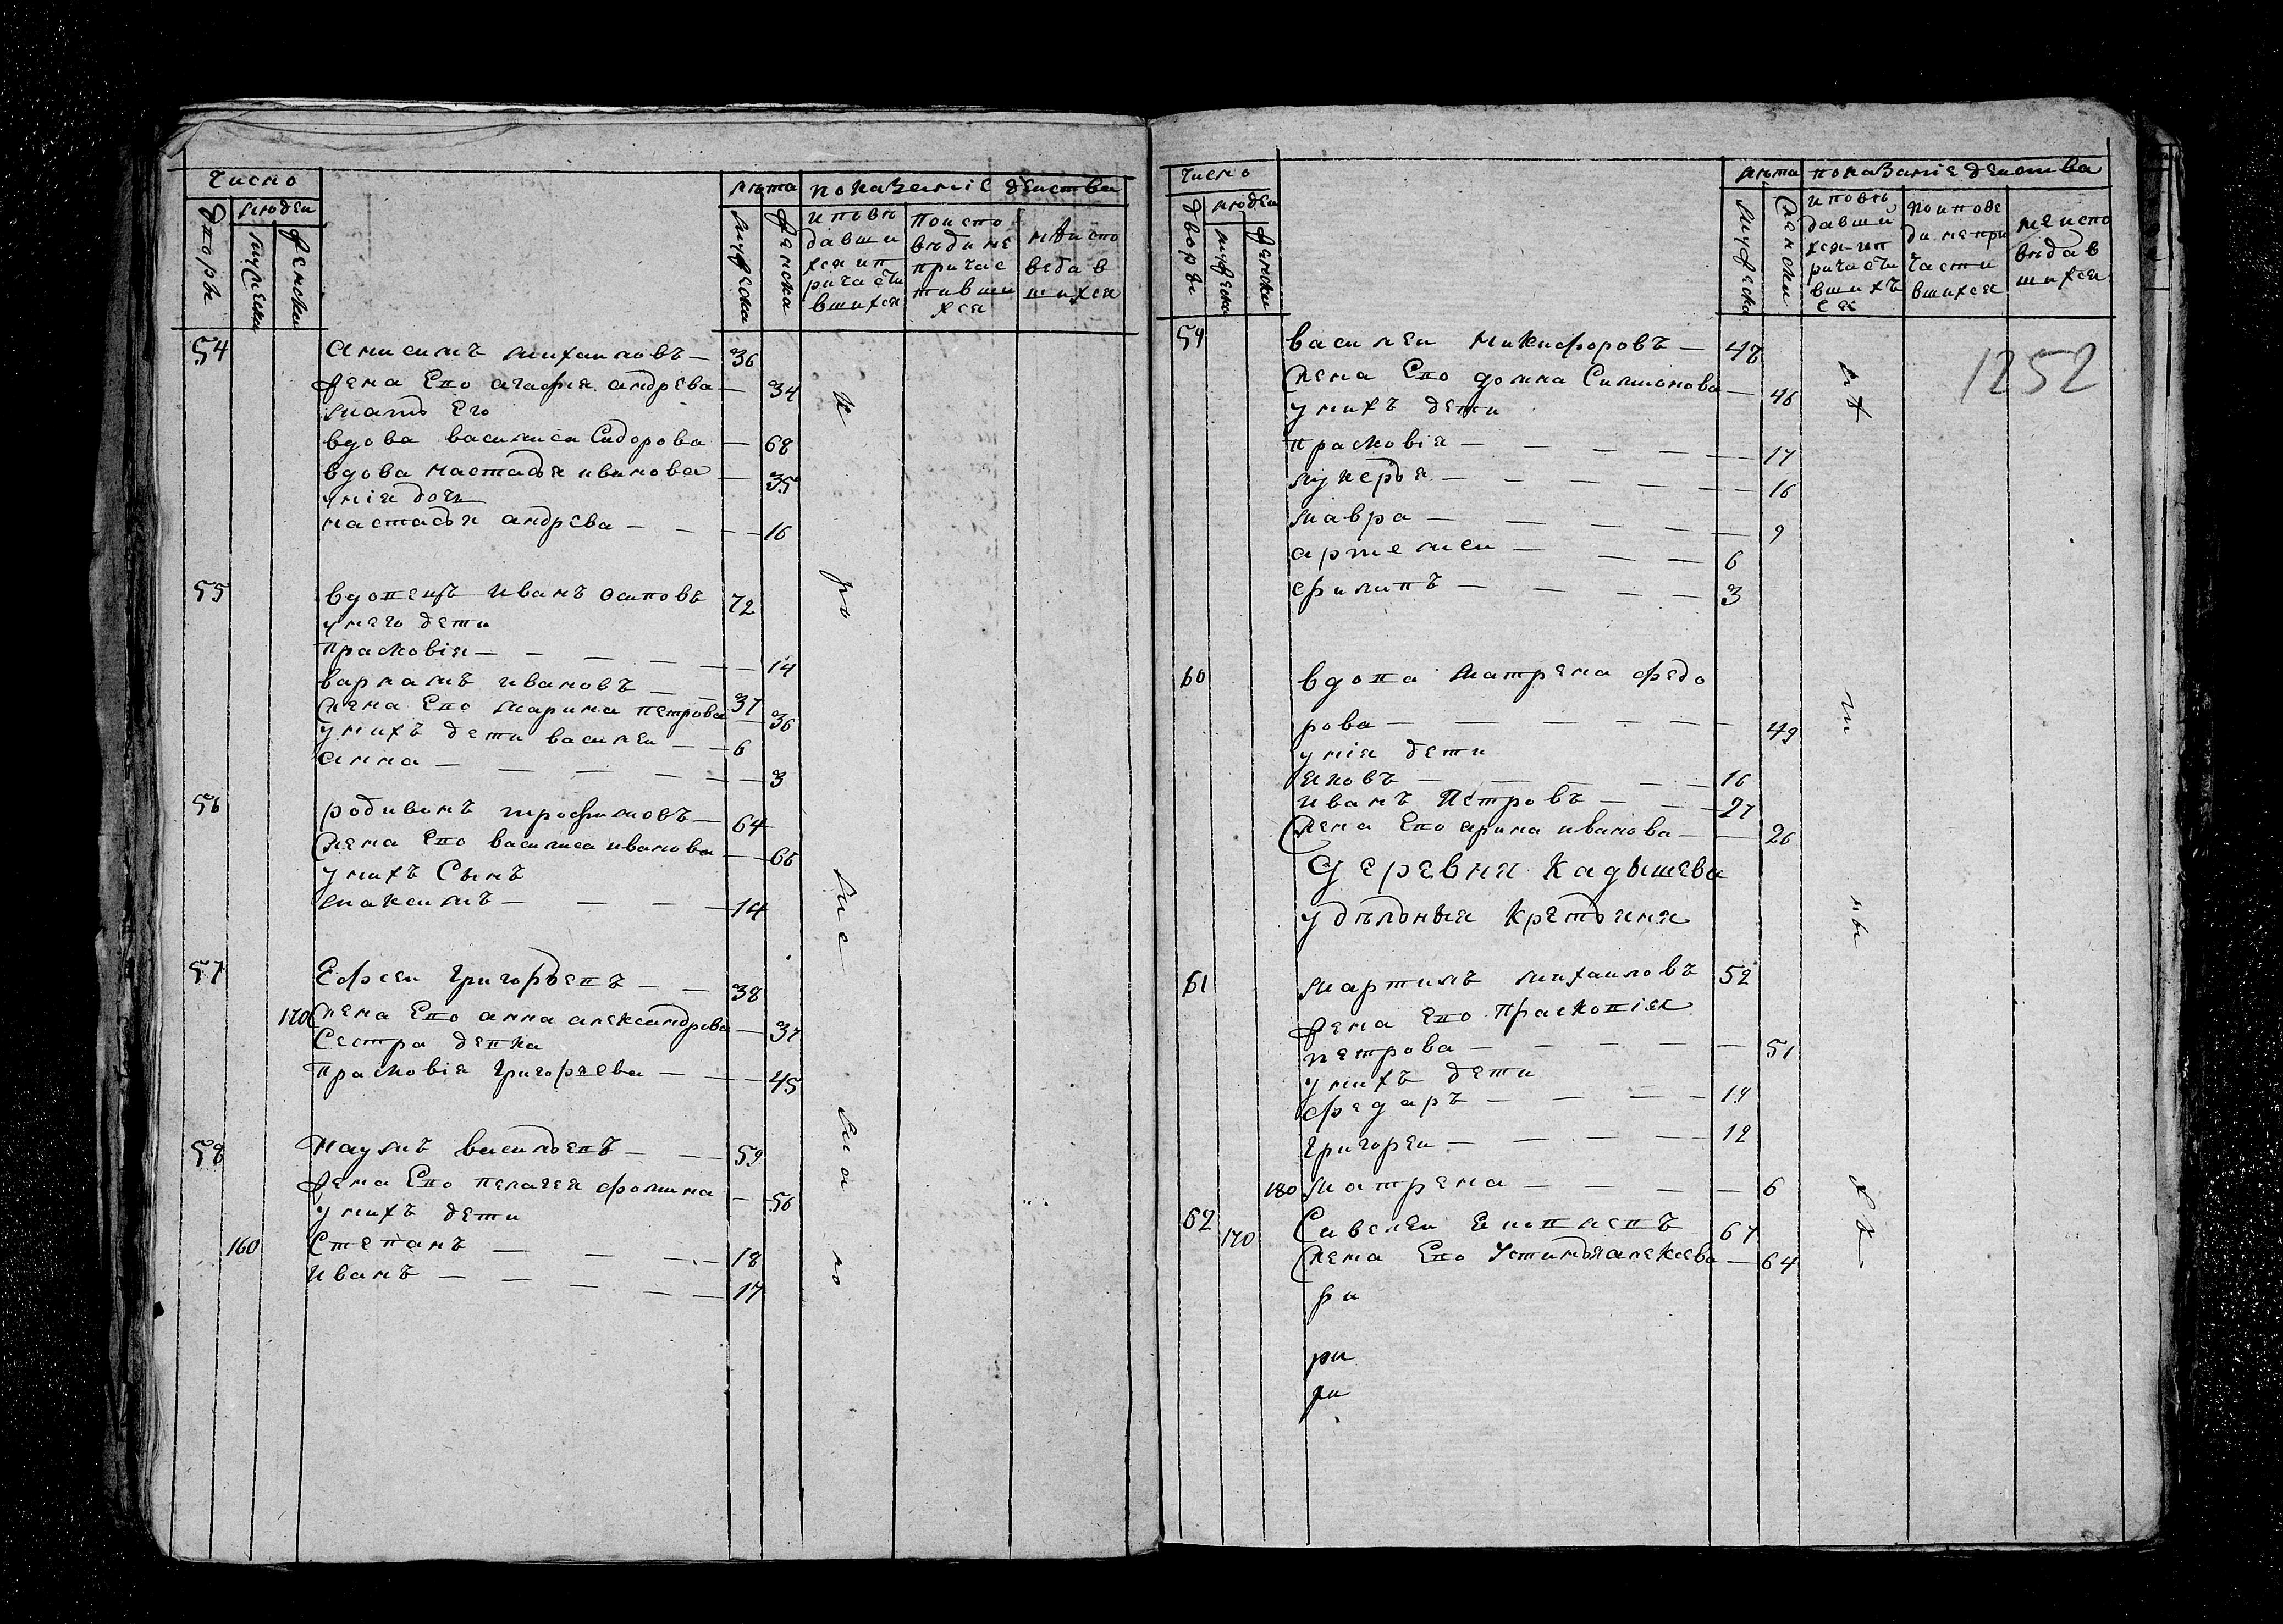 число
лѣта показание деиства
дворъ
людеи
мужеска
женска
мужеска
женска
исповѣ
давши
хся ип
ричасти
вшихся
поиспо
вѣди не
причас
тивши
хся
неиспо
ведав
шихся
54 Анисимъ михаиловъ — 36
жена Его агафия андрева — 34
мать Его
вдова василиса Сидорова — 68
вдова настасья иванова — 35
унѣя дочь
настасья андрева — — — 16
55 вдовецъ Иванъ осиповъ 72
унего дети
прасковія — — — — — 14
варламъ ивановъ — — 37
жена Его марина петрова — 36
унихъ дети василеи — — 6
анна — — — — — — 3
56 родивонъ трофимовъ — 64
жена Его василиса иванова — 66
унихъ Сынъ
максимъ — — — — 14
57 Ефсеи григорьевъ — — 38
170 жена Его анна александрова — 37
Сестра девка
прасковія григорьева — — — 45
58 Наумъ васильевъ — — 59
жена Его пелагея фомина — 56
унихъ дети
160 Степанъ — — — — 18
иванъ — — — — — 17
число
лѣта показание деиства
дворъ
людеи
мужеска
женски
мужеска
женски
исповѣ
давши
хся ип
ричасти
вшихъ
ся
поиспове
ди непри
части
вшихся
неиспо
вѣдав
шихся
1252
59 василеи Никифоровъ — 48
жена Его домна Симионова — 46
унихъ дети
прасковія — — — — — 17
лукерья — — — — — — 16
мавра — — — — — 9
артемеи — — — 6
филипъ — — — — 3
60 вдова матрена федо
рова — — — — — — 49
унѣя дети
яковъ — — — — — 16
иванъ Петровъ — — — 27
жена Его арина иванова — — 26
деревня Кадышева
удѣльныя кретьяня
61 мартинъ михаиловъ 52
жена Его Прасковія
петрова — — — — — 51
унихъ дети
федаръ — — — — 19
григореи — — — — 12
180 матрена — — — — — 6
62 170 Савелеи 67
жена Его Устинья алексева — 64
ра
ри
ри